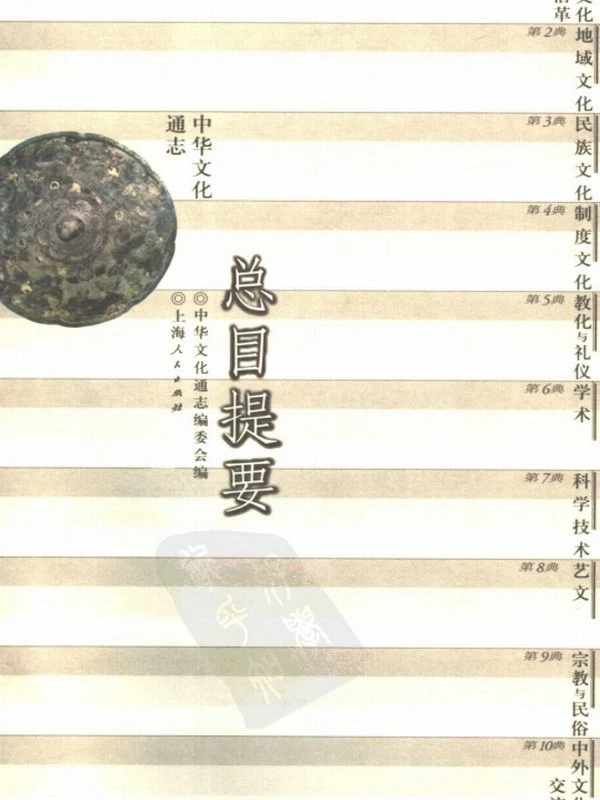 中华文化
通志
总目提要
◎中华文化通志编委会编
◎上海人民出版社
文化
沿革
第2典
地域文化
第3典
民族文化
第4典
制度文化
第5典
教化与礼仪
第6典
学术
第7典
科学技术
第8典
艺文
第9典
宗教与民俗
第10典
中外文化
交流